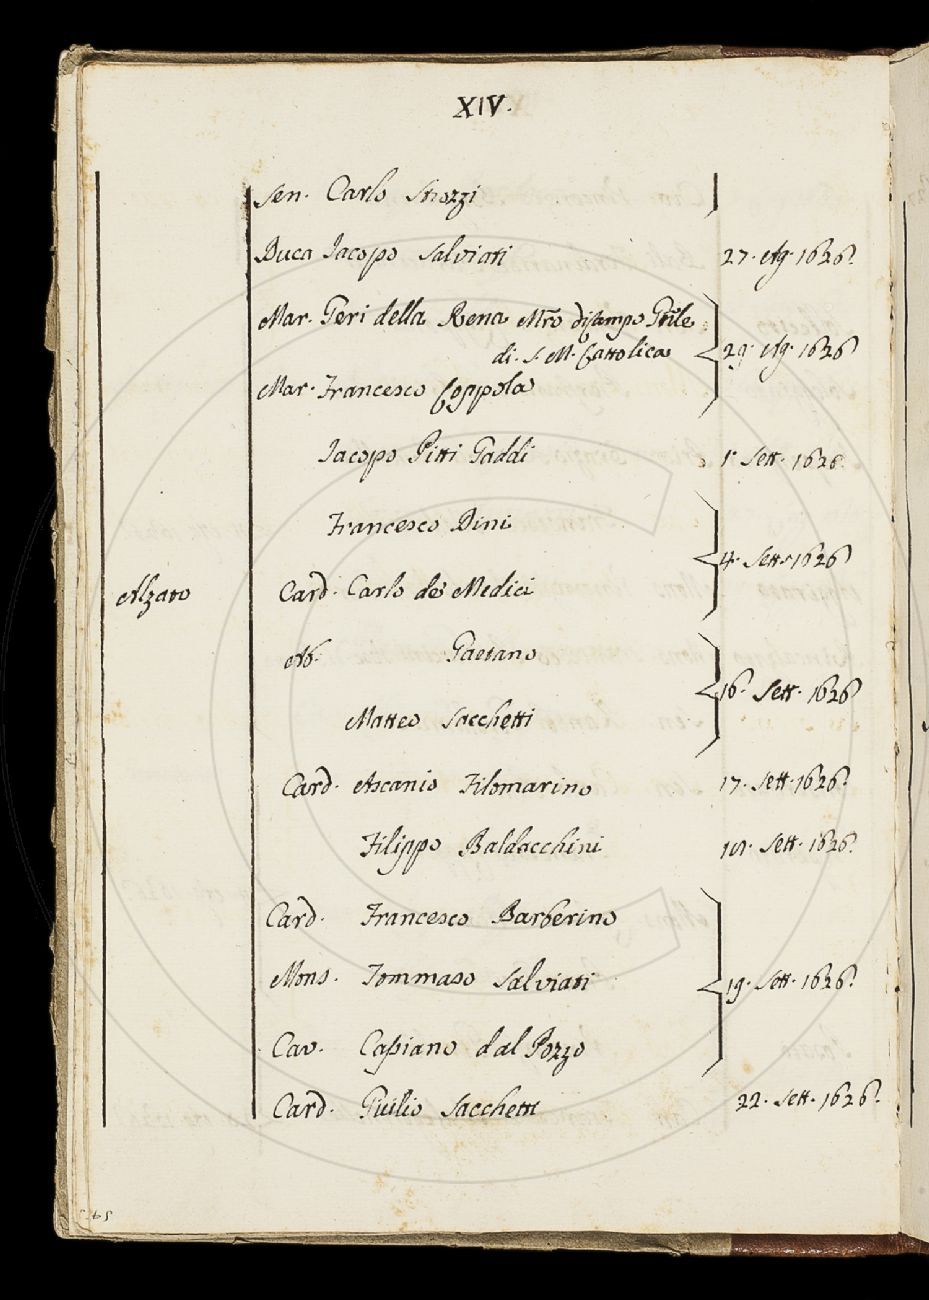 XIV.
Sen. Carlo Strozzi
Duca Jacopo Salviati 27. Ag. 1626.
Mar. Geri della Rena Mro di Campo Gñle
di S. M. Cattolica 29. Ag. 1626
Mar. Francesco Coppola
Jacopo Pitti Gaddi 1. Sett. 1626.
Francesco Dini
4. Sett. 1626
Alzato Card. Carlo de' Medici
Ab. Gaetano
16. Sett. 1626
Matteo Sacchetti
Card. Ascanio Filomarino 17. Sett. 1626.
Filippo Baldacchini Sett. 1626.
Card. Francesco Barberino
Mons. Tommaso Salviati 19. Sett. 1626.
Cav. Cassiano dal Pozzo
Card. Giulio Sacchetti 22. Sett. 1626.